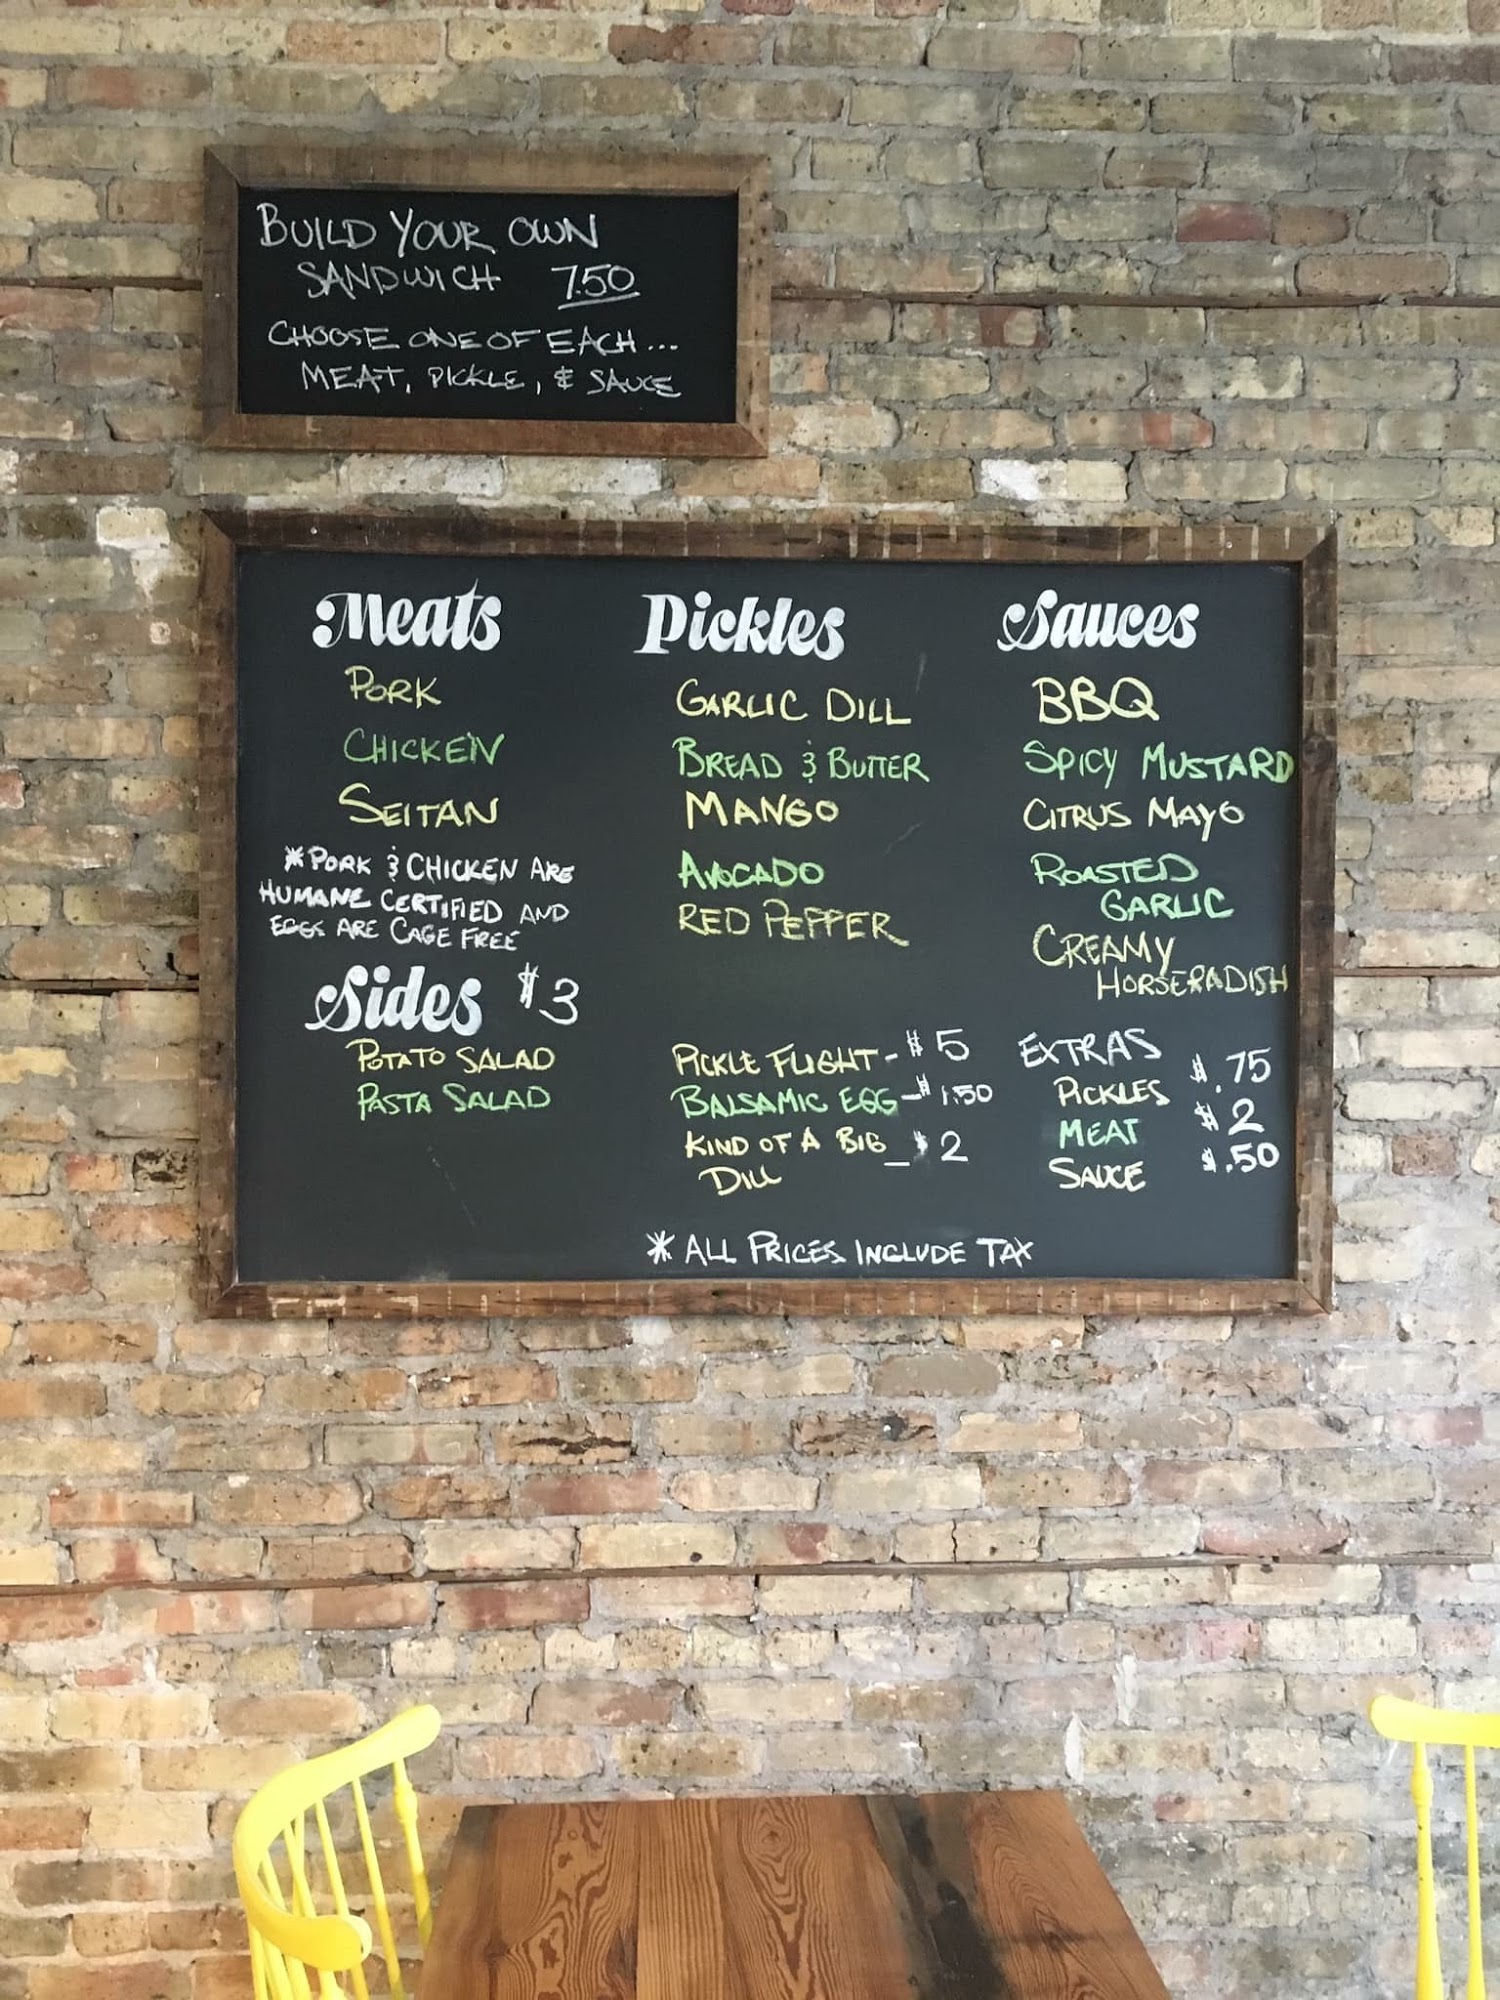 BUILD YOUR OWN
SANDWICH 7.50
CHOOSE ONE OF EACH...
MEAT, PICKLE, & SAUCE
Meats
PORK
CHICKEN
SEITAN
*PORK & CHICKEN ARE
HUMANE CERTIFIED AND
EGGS ARE CAGE FREE
Sides $3
POTATO SALAD
PASTA SALAD
Pickles
GARLIC DILL
BREAD & BUTTER
MANGO
AVOCADO
RED PEPPER
PICKLE FLIGHT - $5
BALSAMIC EGG - $1.50
KIND OF A BIG - $2
DILL
Sauces
BBQ
SPICY MUSTARD
CITRUS MAYO
ROASTED
GARLIC
CREAMY
HORSERADISH
EXTRAS
PICKLES $.75
MEAT $2
SAUCE $.50
*ALL PRICES INCLUDE TAX